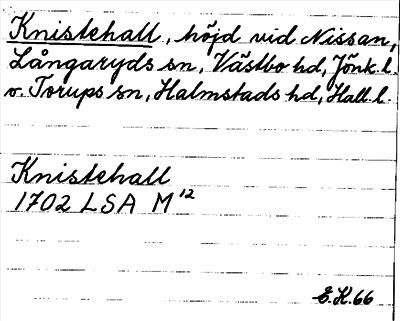 Knistehall, höjd vid Nissan,
Långaryds sn, Västbo hd, Jönk. l.
o. Torups sn, Halmstads hd, Hall. l.
Knistehall
1702 LSA M¹²
E.K. 66